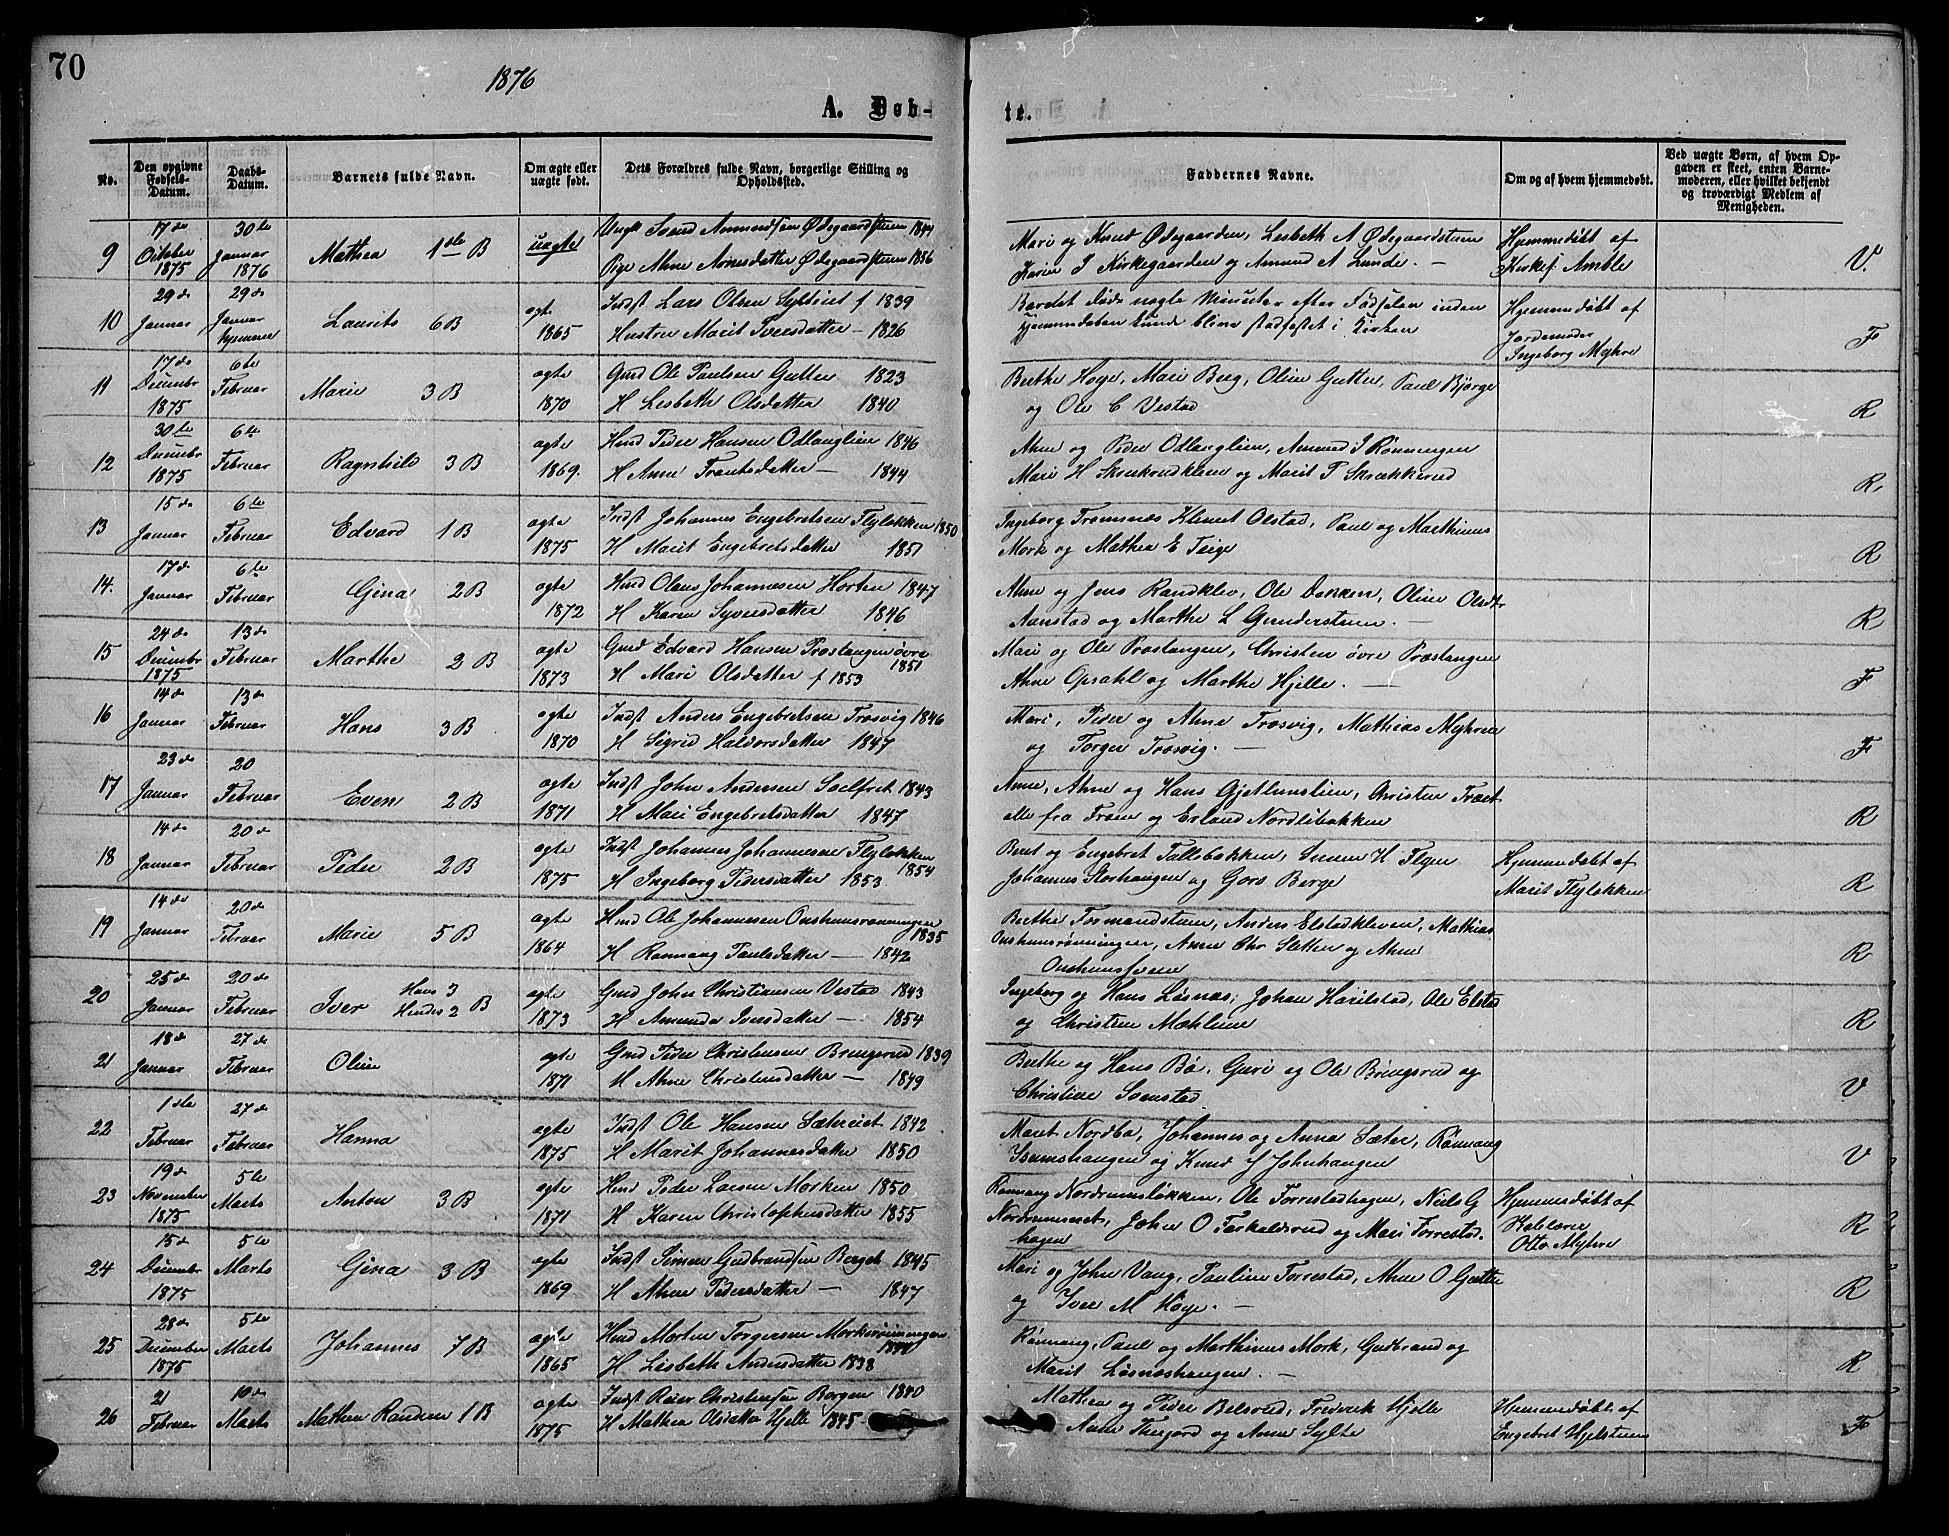 70
1876
A. Døb-
te.
No.
Den opgivne
Fødsels-
Datum.
Daabs-
Datum.
Barnets fulde Navn.
Om ægte eller
uægte født.
Dets Forældres fulde Navn, borgerlige Stilling og
Opholdssted.
Faddernes Navne.
Om og af hvem hjemmedøbt.
Ved uægte Børn, af hvem Op-
gaven er skeet, enten Barne-
moderen, eller hvilket bekjendt
og troværdigt Medlem af
Menigheden.
9
17de
October
1875
30te
Januar
1876
Mathea 1ste B
uægte
Svend Amundsen Ødegaardstuen 1844
Pige Ahne Arnesdatter Ødegaardstuen 1856
Mari og Knud Ødegaarden, Lisbeth A Ødegaardstuen
Karen I Kirkegaarden og Amund A Lunde. —
Hjemmedøbt af
Kirkes. Amble
V.
10
29de
Januar
29de
Januar
hjemme
Laurits 6 B
ægte
1865
Indst Lars Olsen f 1839
Hustru Marit Iversdatter — 1826
Barnet døde nogle Minuter efter Fødselen inden
hjemmedaaben kunde blive stadfæstet i Kirken
Hjemmedøbt af
Jordemoder
Ingeborg Myhre
F
11
17de
Decembr
1875
6te
Februar
Marie 3 B
ægte
1870
Gmd Ole Paulsen Gutter 1823
H Lisbeth Olsdatter 1840
Berthe Høye, Mari Berg, Oline Gutter, Paul Bjørge
og Ole C Vestad
R
12
30te
Decembr
1875
6te
Februar
Ragnhild 3 B
ægte
1869.
Hmd Peder Hansen Odlauglien 1846
H Anne Frantsdatter — 1844
Ahne og Peder Odlauglien, Amund I Rønningen
Mari H Skrukrudklein og Marit P Skrækkerud
R.
13
15de
Januar
6te
Februar
Edvard 1 B
ægte
1875
Indst Johannes Engebretsen Flyløkken 1850
H Marit Engebretsdatter 1851
Ingeborg Tromsnæs Klemet Olstad, Paul og Marthinus
Mork og Mathea E Teige
R
14.
17de
Januar
6te
Februar
Gina 2 B
ægte
1872
Hmd Olaus Johannesen Horten 1847
H Karen Syversdatter 1846
Ahne og Jens Randklev, Ole Dekken, Oline Olsdtr
Aanstad og Marthe L Gunderstuen. —
R
15
24de
Decembr
1875
13de
Februar
Marthe 2 B
ægte
1873
Gmd Edvard Hansen Præstangen øvre
1851
H Mari Olsdatter f 1853
Mari og Ole Præstangen, Christen øvre Præstangen
Ahne Opsahl og Marthe Hjelle. —
F
16
14de
Januar
13de
Februar
Hans 3 B
ægte
1870
Indst Anders Engebretsen Trosvig 1846
H Sigrid Haldorsdatter 1847
Mari, Peder og Ahne Trosvig, Mathias Myhren
og Torger Trosvig. —
F
17
23de
Januar
20
Februar
Even 2 B
ægte
1871
Indst John Andersen Soelfret 1843
H Mari Engebretsdatter 1847
Anne, Ahne og Hans Gjetlumslien, Christen Træet
alle fra Fron og Erland Nordlibakken
R
18
14de
Januar
20de
Februar
Peder 2 B
ægte
1875
Indst Johannes Johannesen Flyløkken
1854
H Ingeborg Pedersdatter 1853
Beret og Engebret Tallebakken, Simen H Flyen
Johannes Storhaugen og Goro Berge
Hjemmedøbt af
Marit Flyløkken
R
19
14de
Januar
20de
Februar
Marie 5 B
ægte
1864
Hmd Ole Johannesen Onshusrønningen
1835
H Rønnaug Paulsdatter — 1842
Berthe Formandstuen, Anders Elstadkleven, Mathias
Onshusrønningen, Anne Chr Sletten og Ahne
Onshussveen
R
20
25de
Januar
20de
Februar
Iver Hans 3
Hendes 2 B
ægte
1873
Gmd John Christiansen Vestad 1843
H Amunda Iversdatter — 1854
Ingeborg og Hans Løsnæs, Johan Harilstad, Ole Elstad
og Christine Mæhlum
R
21
18de
Januar
27de
Februar
Oline
ægte
1871
Gmd Peder Christensen Bringsrud 1839
H Ahne Christensdatter — 1849
Berthe og Hans Bø, Guri og Ole Bringsrud og
Christine Svenstad
V
22
1ste
Februar
27de
Februar
Hanna
ægte
1875
Indst Ole Hansen Sætereiet 1842
H Marit Johannesdatter 1850
Maret Nordbø, Johannes og Anna Sæter, Rønnaug
Isumshaugen og Knud J Johnhaugen
V
23
19de
November
1875
5te
Marts
Anton 3 B
ægte
1871
Hmd Peder Larsen Morken 1850
H Karen Christophersdatter 1855
Rønnaug Nordrumsløkken, Ole Forrestadhagen, Niels G
Nordrumseiet, John O Torkaldsrud og Mari Forrestad.
hagen
Hjemmedøbt af
Otto Myhre
R
24
15de
Decembr
1875
5te
Marts
Gina 3 B
ægte
1869
Indst Simen Gudbrandsen Berget 1845
H Ahne Pedersdatter — 1847
Mari og John Vang, Pauline Forrestad, Ahne O Gutter
og Iver M Høye. —
R
25
28de
December
1875
5te
Marts
Johannes 7 B
ægte
1865
Hmd Morten Torgersen Morkrønningen
H Lisbeth Andersdatter 1838
Rønnaug, Paul og Marthinus Mork, Gudbrand og
Marit Løsnæshaugen. —
R
26
21
Februar
10de
Marts
Mathea Randine 1 B
ægte
1875
Indst Reier Christensen Borgen 1840
H Mathea Olsdatter Hjelle 1845
Mathea og Peder Belsrud, Frederik Hjelle
Anne Thujord og Anne Sylte
Hjemmedøbt af
Engebret Hjelstuen
F